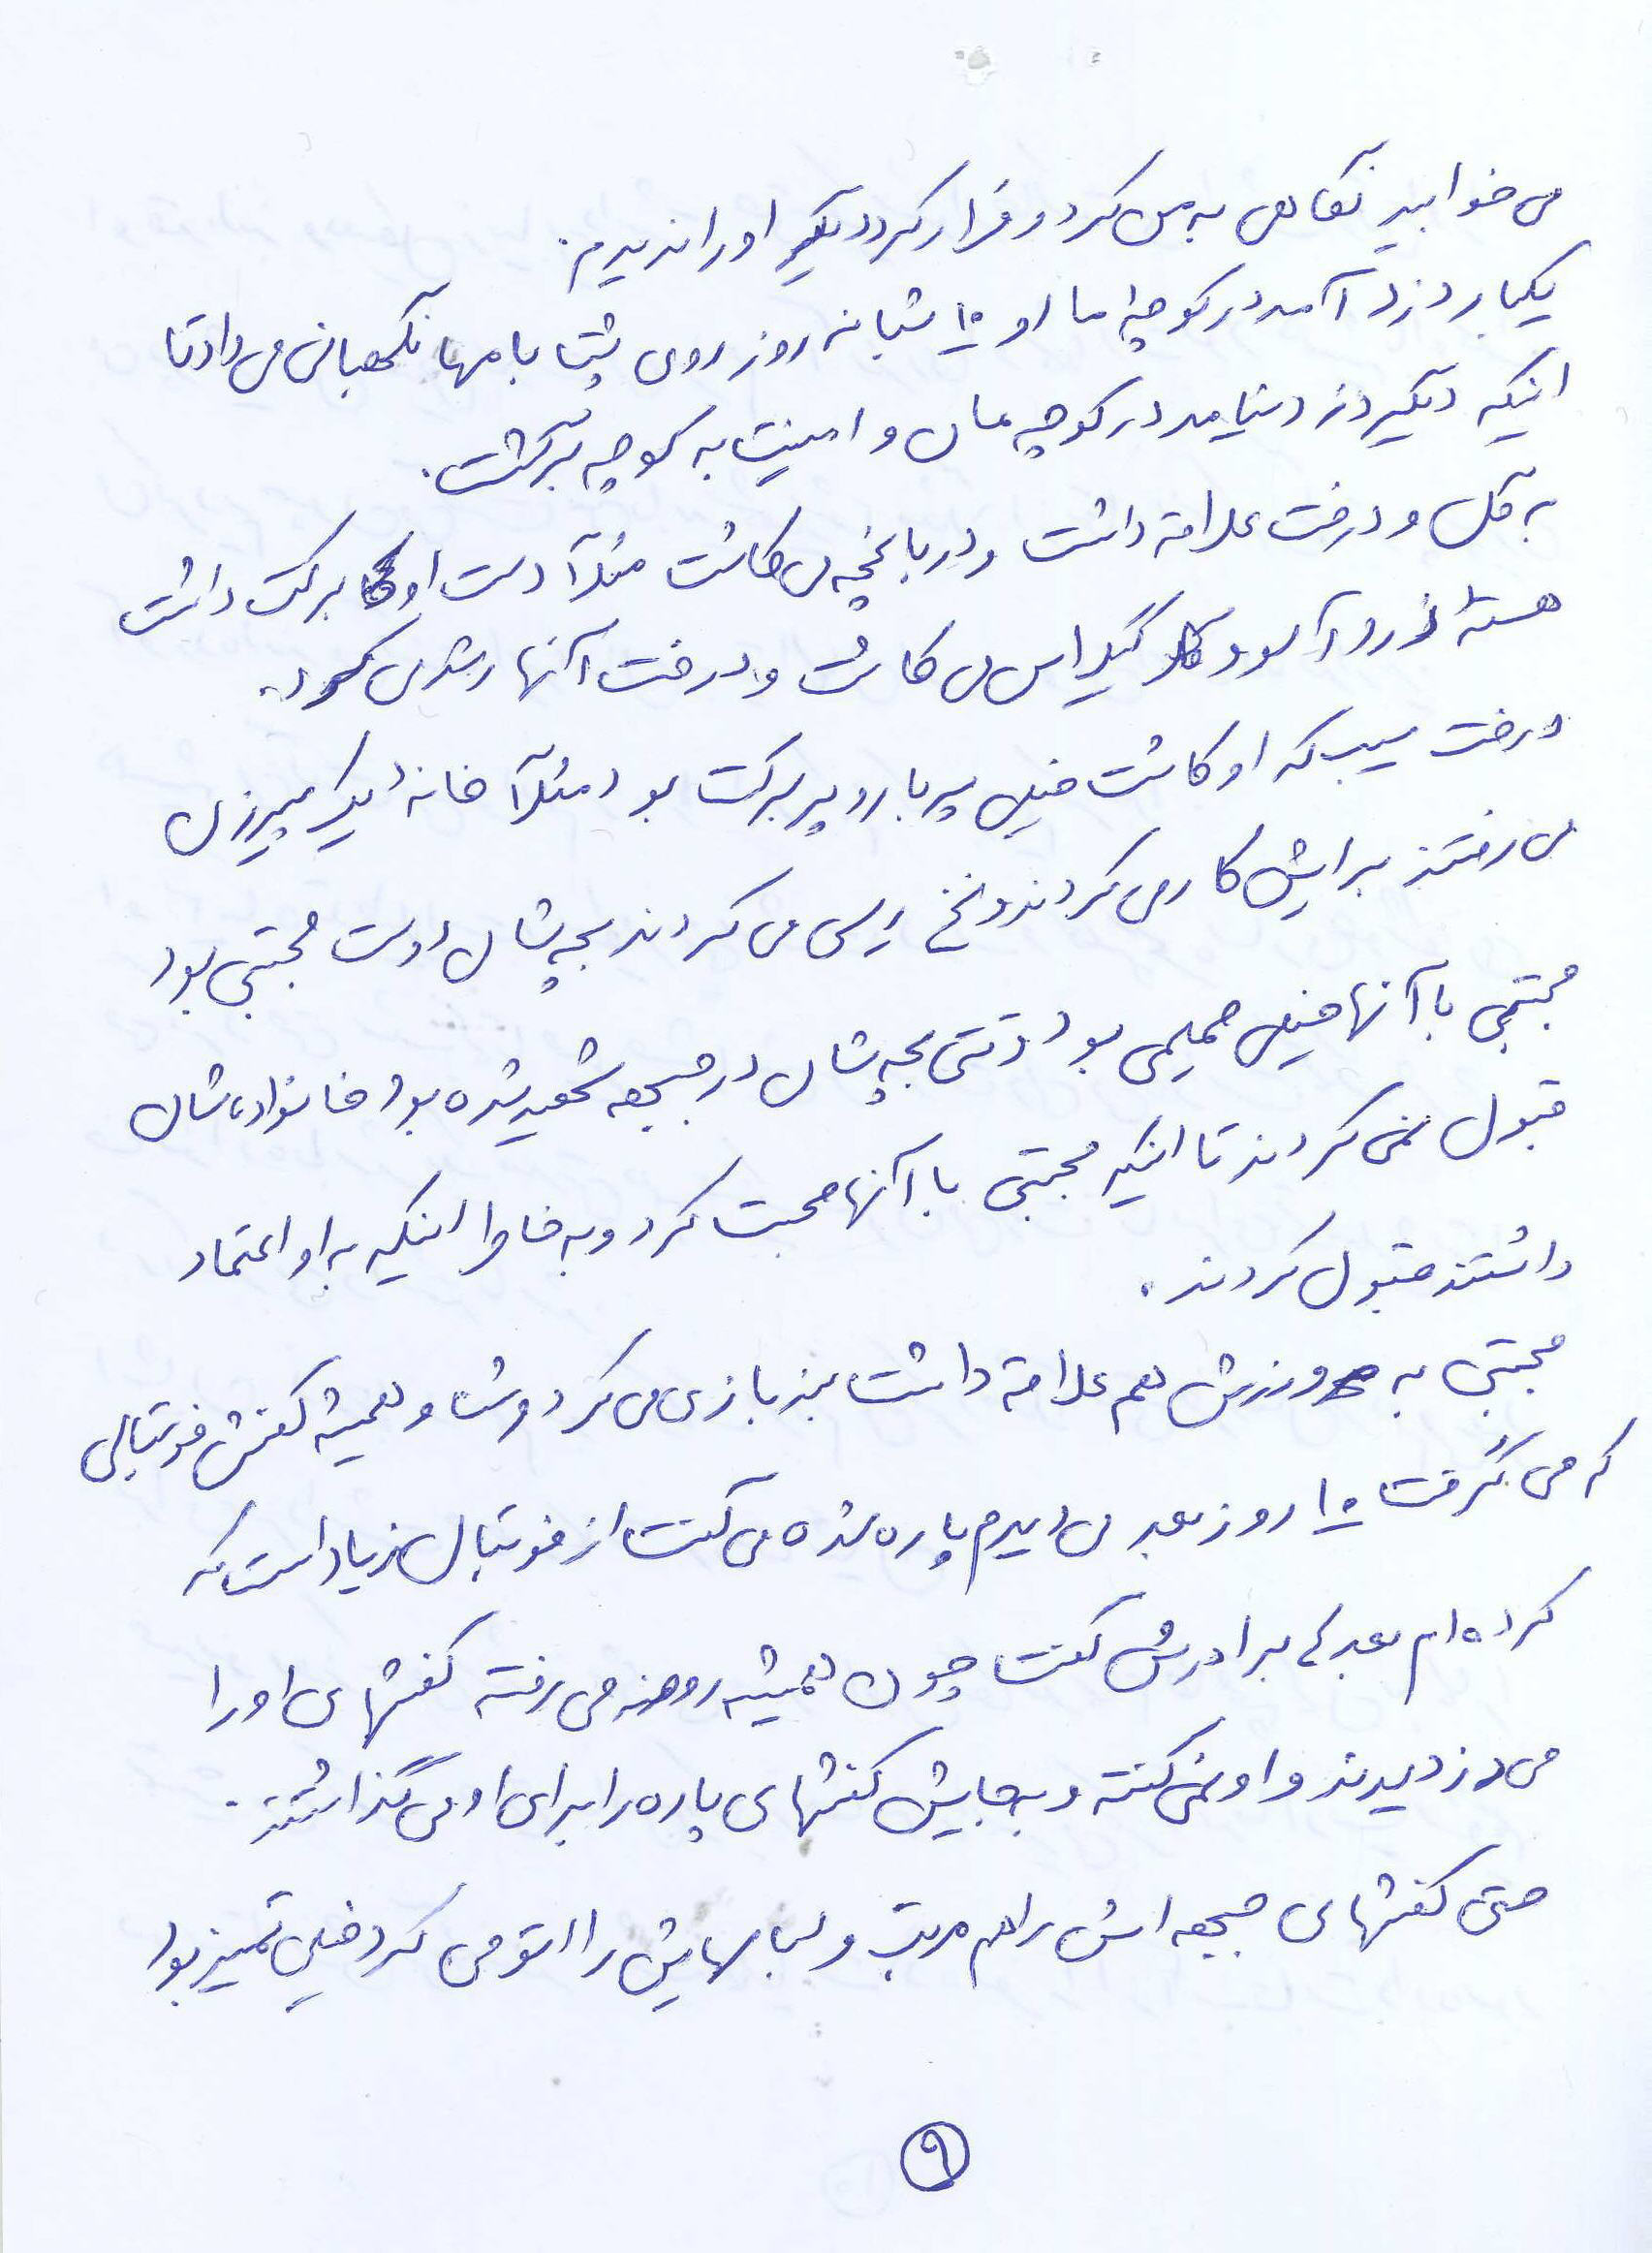 می خوابید نگاهی به من کرد و فرار کرد دیگر او را ندیدم.
یکبار دزد آمد در کوچه ما او ۱۰ شبانه روز روی پشت بامها نگهبانی می داد تا
اینکه دیگر دزد نیامد در کوچه مان و امنیت به کوچه برگشت.
به گل و درخت علاقه داشت و در باغچه می کاشت مثلاً دست او برکت داشت
هسته زردآلو و گیلاس می کاشت و درخت آنها رشد می کرد.
درخت سیب که او کاشت خیلی پر بار و پر برکت بود مثلاً خانه یک پیرزن
می رفتند برایش کار می کردند و نخ ریسی می کردند بچه شان دوست مجتبی بود
مجتبی با آنها خیلی صمیمی بود وقتی بچه شان در جبهه شهید شده بود خانواده شان
قبول نمی کردند تا اینکه مجتبی با آنها صحبت کرد و به خاطر اینکه به او اعتماد
داشتند قبول کردند.
مجتبی به ورزش هم علاقه داشت نیز بازی می کرد و شنا و همیشه کفش فوتبالی
که می گرفت ۱۰ روز بعد می دیدم پاره شده می گفت از فوتبال زیاد است که
کرده ام بعد که برادرش گفت چون همیشه روضه می رفته کفشهای او را
می دزدیدند و او نمی گفته و به جایش کفشهای پاره را برای او می گذاشتند.
حتی کفشهای جبهه اش را هم مرتب و لباسهایش را اتو می کرد خیلی تمیز بود
۹